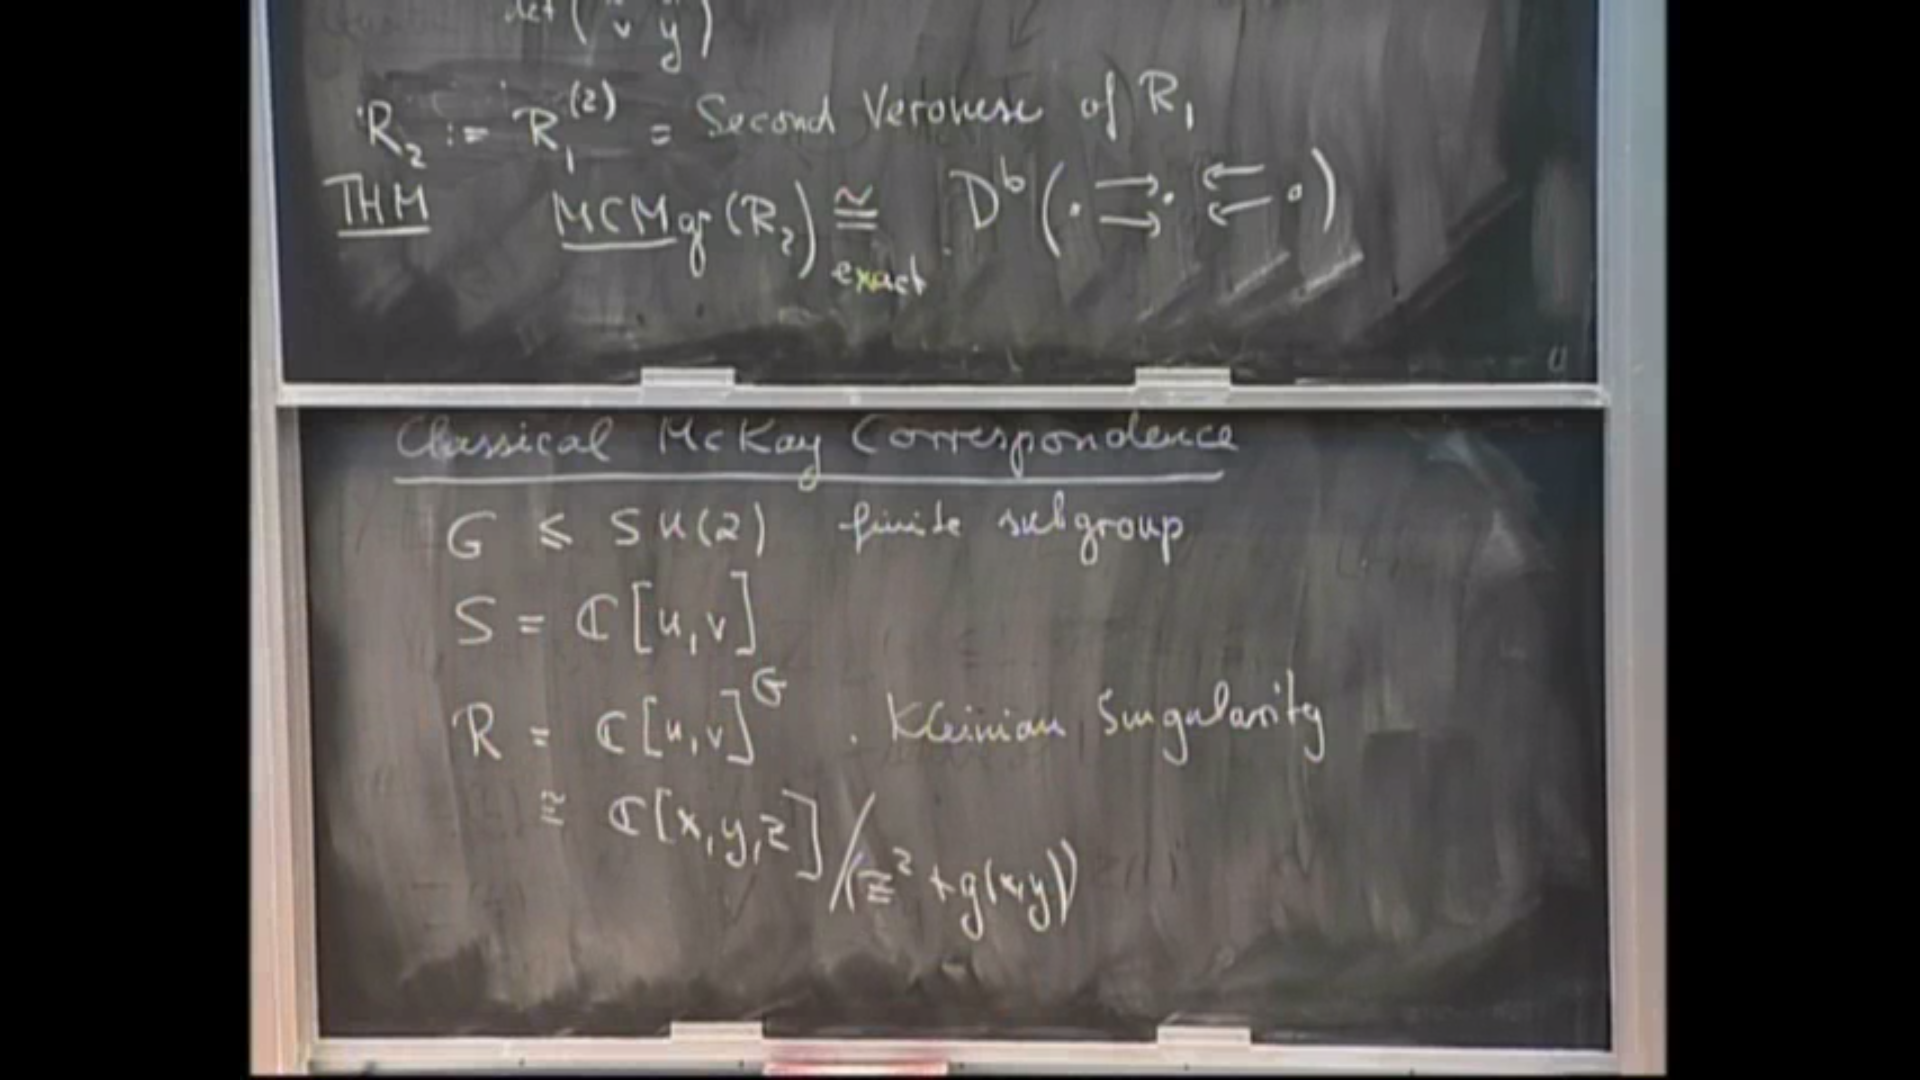 det ( v y )
R₂ := R₁⁽²⁾ = Second Veronese of R₁
THM MCMgr(R₂) ≅ exact Dᵇ( · ⇉ · ⇇ · )
Classical McKay Correspondence
G ⩽ SU(2) finite subgroup
S = ℂ[u,v]
R = ℂ[u,v]ᴳ . Kleinian Singularity
≅ ℂ[x,y,z]/(z² + g(x,y))